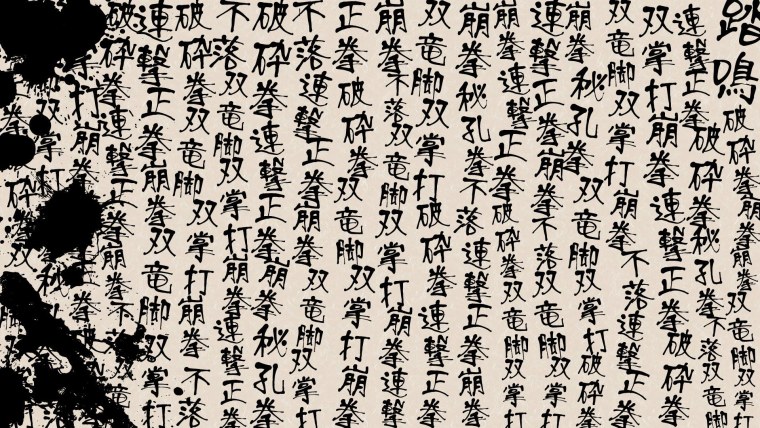 踏鳴破砕拳崩拳崩拳双竜脚双掌打
連撃正拳破砕拳秘孔拳不落双竜脚
双掌打崩拳連撃正拳破砕拳
双竜脚双掌打崩拳不落連撃正拳
崩拳秘孔拳双竜脚双掌打破砕拳
連撃正拳崩拳不落双竜脚双掌打
崩拳連撃正拳破砕拳双竜脚双掌打
崩拳秘孔拳不落連撃正拳崩拳
双竜脚双掌打破砕拳連撃正拳
崩拳不落双竜脚双掌打崩拳連撃
正拳破砕拳双竜脚双掌打崩拳
不落連撃正拳崩拳双竜脚双掌打
破砕拳連撃正拳崩拳秘孔拳
不落双竜脚双掌打崩拳連撃正拳
破砕拳双竜脚双掌打崩拳不落
連撃正拳崩拳双竜脚双掌打
破砕拳連撃正拳崩拳不落双竜
打崩拳
双掌打
拳破砕